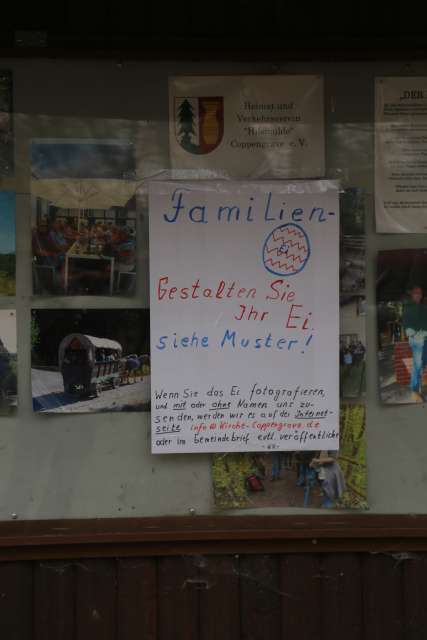 Heimat und
Verkehrsverein
"Hilsmulde"
Coppengrave e. V.
„DER
Familien-
Ei
Gestalten Sie
Ihr Ei
siehe Muster!
Wenn Sie das Ei fotografieren,
und mit oder ohne Namen uns zu-
senden, werden wir es auf der Internet-
seite info@Kirche-Coppengrave.de
oder im Gemeindebrief evtl. veröffentliche